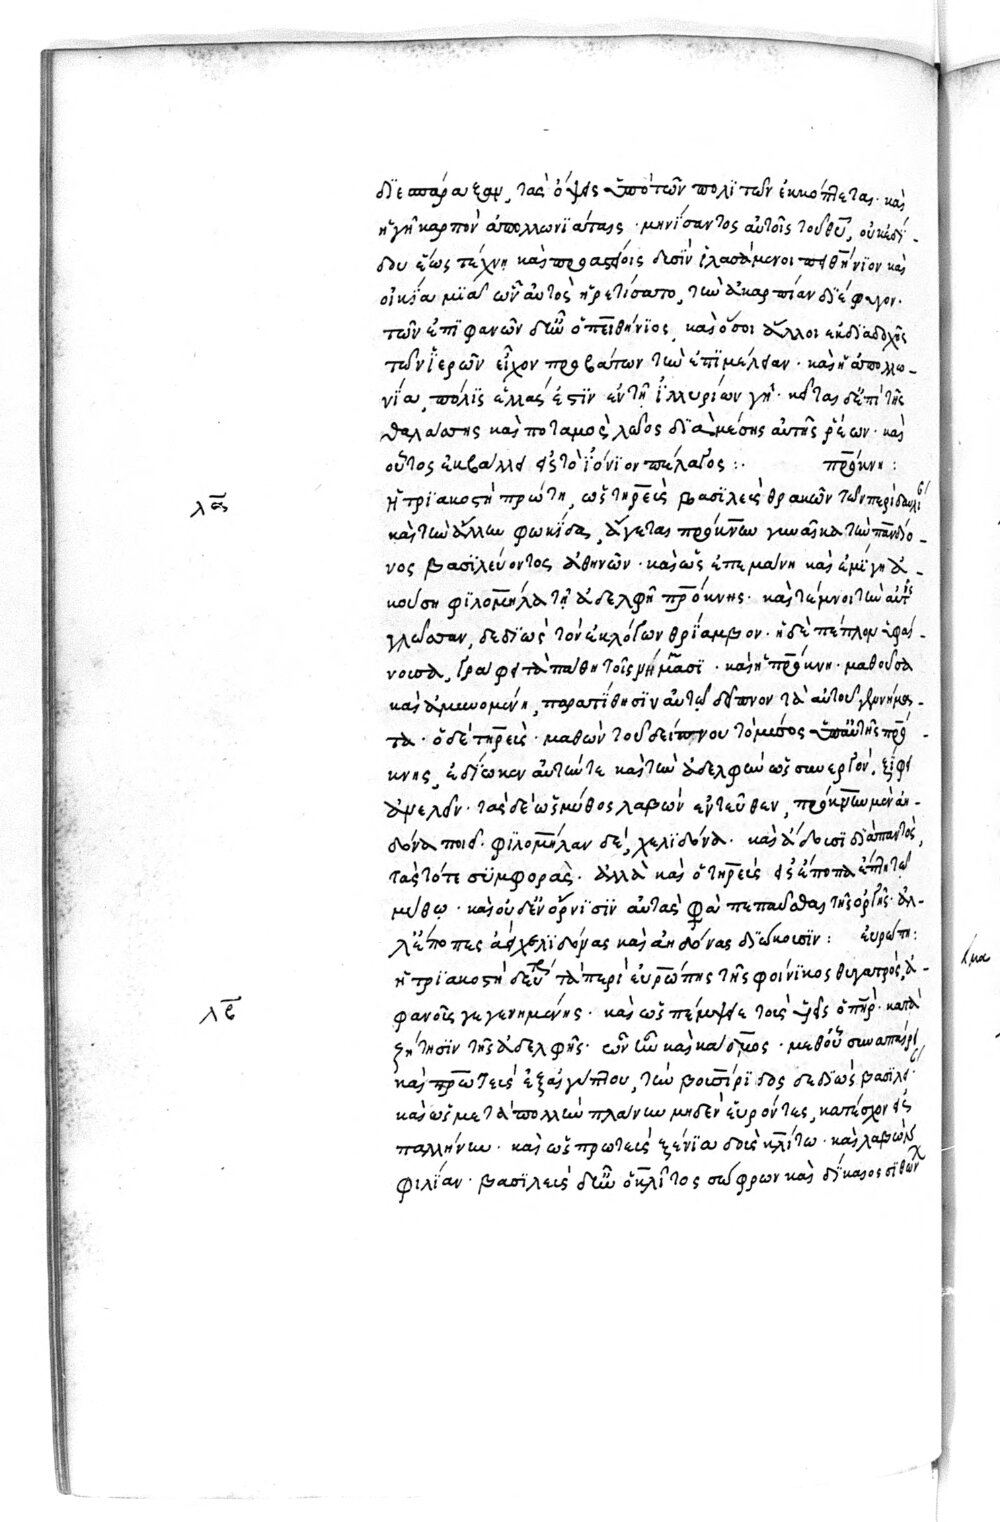 διεσπάραξαν, τὰς ὄψεις ὑπὸ τῶν πολιτῶν ἐκκόπτεται· καὶ
ἡ γῆ καρπὸν ἀπολλωνιάταις· μηνίσαντος αὐτοῖς τοῦ θυ, οὐκ ἐδί-
δου ἕως τέχνη καὶ προαστείοις δυσὶν ἱλασάμενοι πειθήνιον καὶ
οἰκία μιᾷ ὧν αὐτὸς ᾑρετίσατο, τὴν ἀκαρπίαν διέφυγον·
τῶν ἐπιφανῶν δ' ἦν ὁ πειθήνιος, καὶ ὅσοι ἄλλοι ἐκ διαδοχῆς
τῶν ἱερῶν εἶχον προβάτων τὴν ἐπιμέλειαν· καὶ ἡ ἀπολλω-
νία, πόλις ἑλλάς ἐστιν ἐν τῇ ἰλλυριῶν γῆ· κεῖται δ' ἐπὶ τῆς
θαλάσσης καὶ ποταμὸς λῶος διὰ μέσης αὐτῆς ῥέων· καὶ
οὗτος ἐκβάλλει εἰς τὸ ἰόνιον πέλαγος :· πρόκνη :
λα Ἡ τριακοστὴ πρώτη, ὡς τηρεὺς βασιλεὺς θρακῶν τῶν περὶ δαυλί
καὶ τὴν ἄλλην φωκίδα, ἄγεται πρόκνην γυναῖκα τὴν πανδίο-
νος βασιλεύοντος ἀθηνῶν· καὶ ὡς ἐπεμάνη καὶ ἐμίγη ἀ-
κούση φιλομήλα τῇ ἀδελφῇ πρόκνης· καὶ τέμνοι τὴν αὐτῆς
γλῶσσαν, δεδιὼς τὸν ἐκ λόγων θρίαμβον· ἡ δὲ πέπλον ὑφαί-
νουσα, γράφει τὰ πάθη τοῖς νήμασι· καὶ ἡ πρόκνη· μαθοῦσα
καὶ ἀμυνομένη, παρατίθησιν αὐτῷ δεῖπνον τὰ αὐτοῦ γεννήμα-
τα· ὁ δὲ τηρεὺς· μαθὼν τοῦ δείπνου τὸ μύσος ὑπ' αὐτῆς πρό-
κνης, ἐδίωκεν αὐτήν τε καὶ τὴν ἀδελφὴν ὡς συνεργὸν, ξίφει
ἀνελεῖν· τὰς δὲ ὡς μῦθος λαβὼν ἐντεῦθεν, πρόκνην μὲν ἀη-
δόνα ποιεῖ· φιλομήλαν δὲ, χελιδόνα· καὶ ἄδουσι διαπαντὸς,
τὰς τότε συμφορὰς· ἀλλὰ καὶ ὁ τηρεὺς εἰς ἔποπα ἐπὶ τῷ
μύθῳ· καὶ οὐδ' ἐν ὄρνισιν αὐτάς φα πεπαῦσθαι τῆς ὀργῆς· ἀλ-
λ' ἔποπες ἀεὶ χελιδόνας καὶ ἀηδόνας διώκουσιν : εὐρώπη :
λβ Ἡ τριακοστὴ δευτ τὰ περὶ εὐρώπης τῆς φοίνικος θυγατρὸς, ἀ-
φανοῦς γεγενημένης· καὶ ὡς πέμψειε τοὺς υἱεῖς ὁ πηρ· κατὰ
ζήτησιν τῆς ἀδελφῆς· ὧν ἦν καὶ κάδμος· μεθ' οὗ συναπαίρει
καὶ πρωτεὺς ἐξ αἰγύπτου, τὴν βουσίριδος δεδιὼς βασιλεί
καὶ ὡς μετὰ πολλὴν πλάνην μηδὲν εὑρόντες, κατέσχον εἰς
παλλήνην· καὶ ὡς πρωτεὺς ξένια δοὺς κλίτω· καὶ λαβὼν
φιλίαν· βασιλεὺς δ' ἦν ὁ κλῖτος σώφρων καὶ δίκαιος σιθων